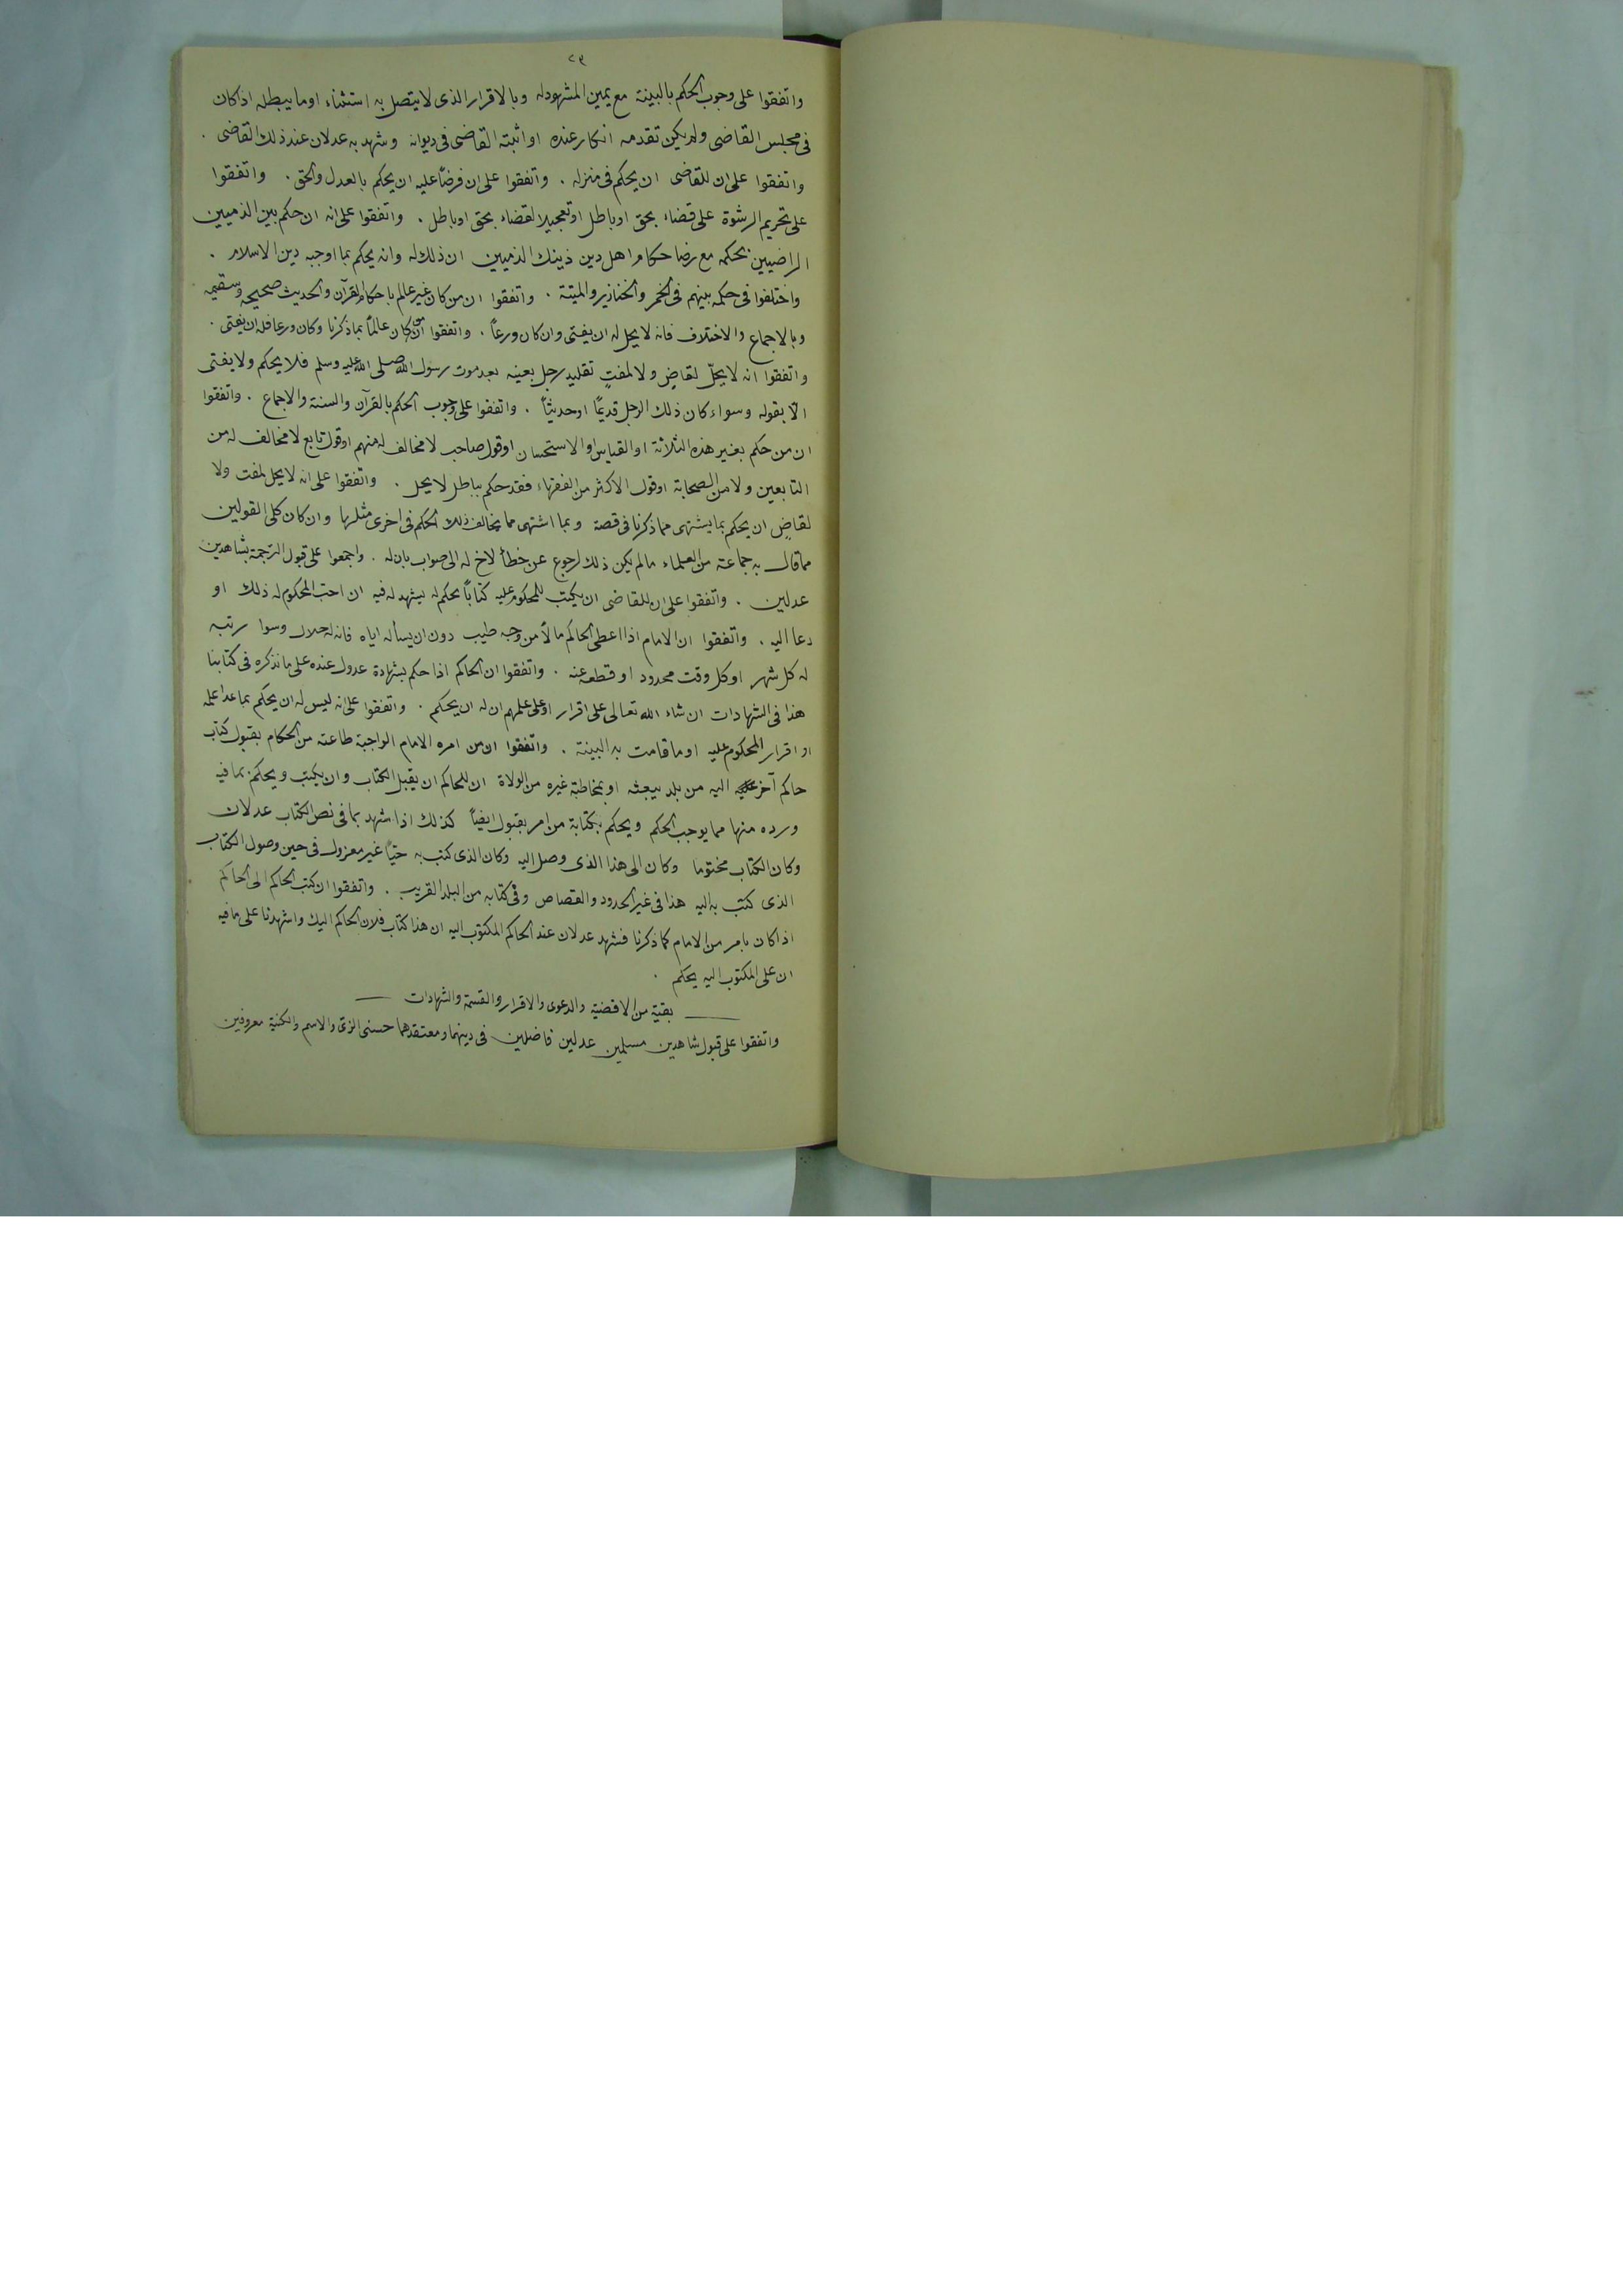 ٢٩
واتفقوا على وجوب الحكم بالبينة مع يمين المشهود له وبالاقرار الذى لا يتصل به استثناء او ما يبطله اذا كان
فى مجلس القاضى ولم يكن تقدمه انكار عنده او اثبته القاضى فى ديوانه وشهد به عدلان عند ذلك القاضى .
واتفقوا على ان للقاضى ان يحكم فى منزله . واتفقوا على ان فرضاً عليه ان يحكم بالعدل والحق . واتفقوا
على تحريم الرشوة على قضاء بحق او باطل او تعجيلا لقضاء بحق او باطل . واتفقوا على انه ان حكم بين الذميين
الراضيين بحكمه مع رضا حكام اهل دين ذينك الذميين ان ذلك له وانه يحكم بما اوجبه دين الاسلام .
واختلفوا فى حكمه بينهم فى الخمر والخنازير والميتة . واتفقوا ان من كان غير عالم باحكام القرآن والحديث صحيحه وسقيمه
وبالاجماع والاختلاف فانه لا يحل له ان يفتى وان كان ورعاً . واتفقوا ان من كان عالماً بما ذكرنا وكان ورعا فله ان يفتى .
واتفقوا انه لا يحلّ لقاضٍ ولا لمفتٍ تقليد رجل بعينه بعد موت رسول الله صلى الله عليه وسلم فلا يحكم ولا يفتى
الّا بقوله وسواء كان ذلك الرجل قديمًا او حديثاً . واتفقوا على وجوب الحكم بالقرآن والسنة والاجماع . واتفقوا
ان من حكم بغير هذه الثلاثة او القياس او الاستحسان او قول صاحب لا مخالف له منهم او قول تابع لا مخالف له من
التابعين ولا من الصحابة او قول الاكثر من الفقهاء فقد حكم بباطل لا يحل . واتفقوا على انه لا يحل لمفت ولا
لقاضٍ ان يحكم بما يشتهى مما ذكرنا فى قصة وبما اشتهى مما يخالف ذلك الحكم فى اخرى مثلها وان كان كلى القولين
مما قال به جماعة من العلماء ما لم يكن ذلك لرجوع عن خطأ لاح له الى صواب بان له . واجمعوا على قبول الترجمة بشاهدين
عدلين . واتفقوا على ان للقاضى ان يكتب للمحكوم عليه كتاباً بحكم له يشهد له فيه ان احب المحكوم له ذلك او
دعا اليه . واتفقوا ان الامام اذا اعطى الحاكم مالاً من وجه طيب دون ان يسأله اياه فانه له حلال وسوا رتبه
له كل شهر او كل وقت محدود او قطعه عنه . واتفقوا ان الحاكم اذا حكم بشهادة عدول عنده على ما نذكره فى كتابنا
هذا فى الشهادات ان شاء الله تعالى على اقرار او على علمهم ان له ان يحكم . واتفقوا على انه ليس له ان يحكم بما عدا علمه
او اقرار المحكوم عليه او ما قامت به البينة . واتفقوا ان من امره الامام الواجبة طاعته من الحكام بقبول كتاب
حاكم آخر اليه من بلد يبعثه او بمخاطبة غيره من الولاة ان للحاكم ان يقبل الكتاب وان يكتب ويحكم بما فيه
ورده منها مما يوجب الحكم ويحكم بكتابة من امر بقبول ايضاً كذلك اذا شهد بما فى نص الكتاب عدلان
وكان الكتاب مختوما وكان الى هذا الذى وصل اليه وكان الذى كتب به حيّاً غير معزول فى حين وصول الكتاب
الذى كتب به اليه هذا فى غير الحدود والقصاص وفى كتابه من البلد القريب . واتفقوا ان كتب الحاكم الى الحاكم
اذا كان بامر من الامام كما ذكرنا فشهد عدلان عند الحاكم المكتوب اليه ان هذا كتاب فلان الحاكم اليك واشهدنا على ما فيه
ان على المكتوب اليه يحكم .
بقية من الاقضية والدعوى والاقرار والقسمة والشهادات
واتفقوا على قبول شاهدين مسلمين عدلين فاضلين فى دينهما ومعتقدهما حسنى الزى والاسم والكنية معروفين